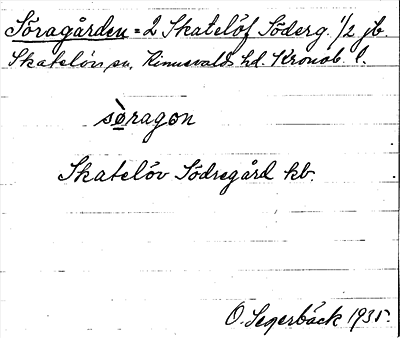 Söragården = 2 Skatelöf Söderg. 1/2 jb.
Skatelövs sn. Kinnevalds hd. Kronob. l.
sø̀ragon
Skatelöv Södregård kb.
O. Segerbäck 1935.